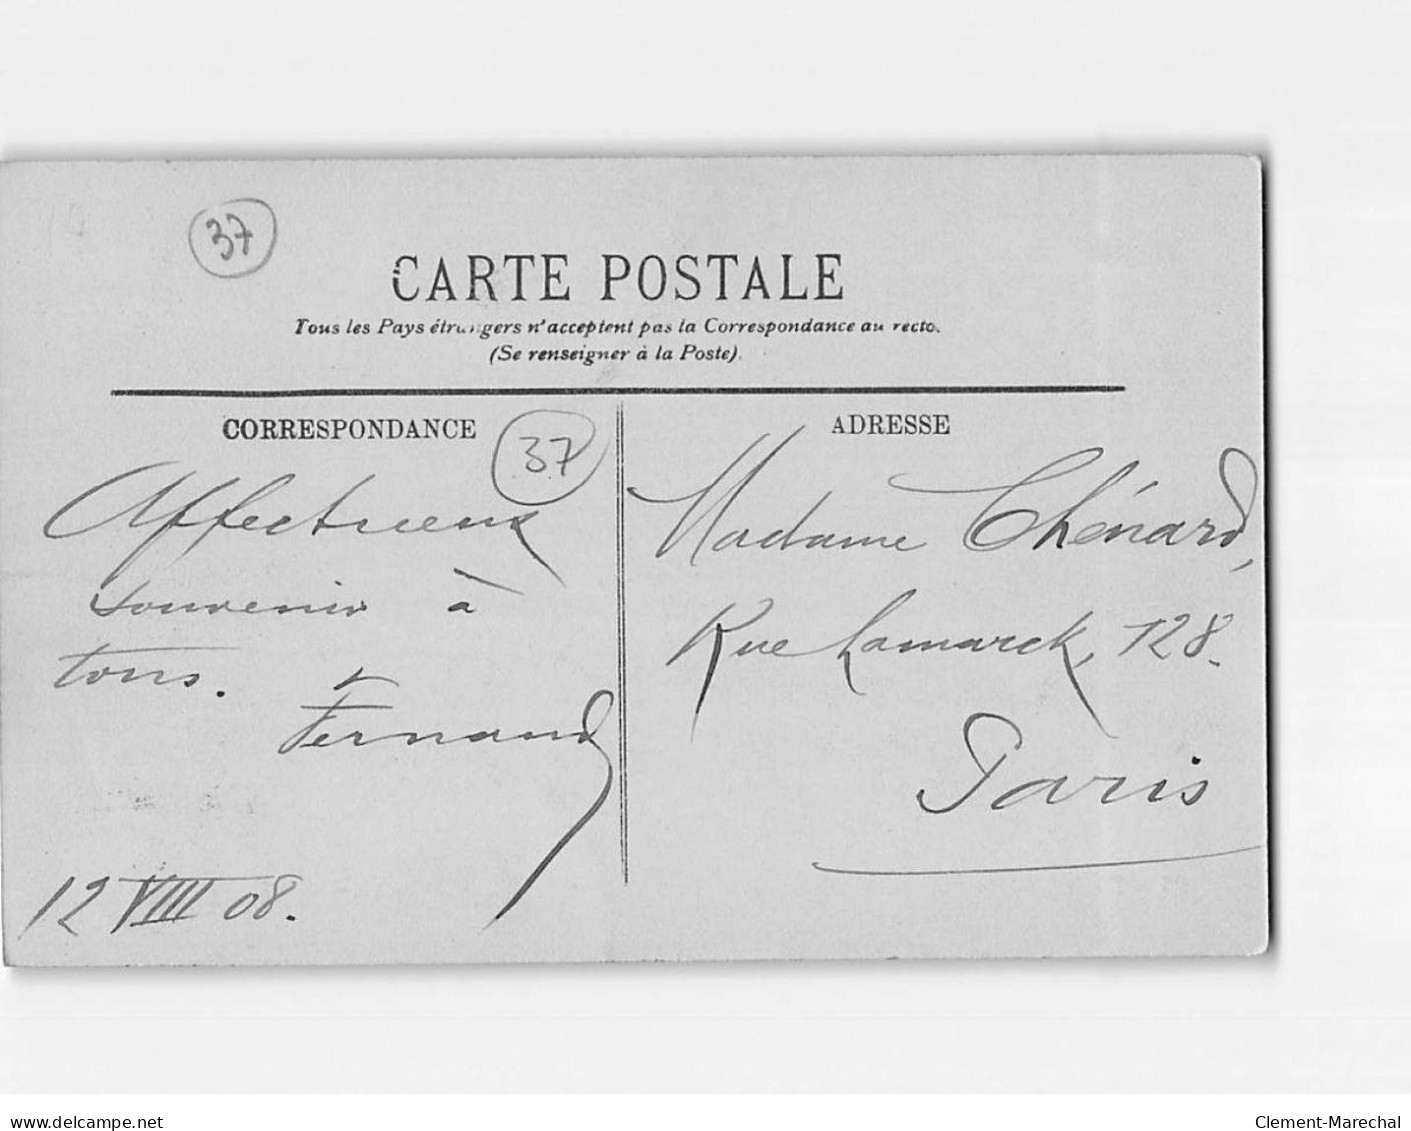 37
CARTE POSTALE
Tous les Pays étrangers n'acceptent pas la Correspondance au recto.
(Se renseigner à la Poste).
CORRESPONDANCE
37
Affectueux
souvenir à
tous.
Fernand
12 VIII 08.
ADRESSE
Madame Chénard,
Rue Lamarck, 128.
Paris
www.delcampe.net
Clement-Marechal